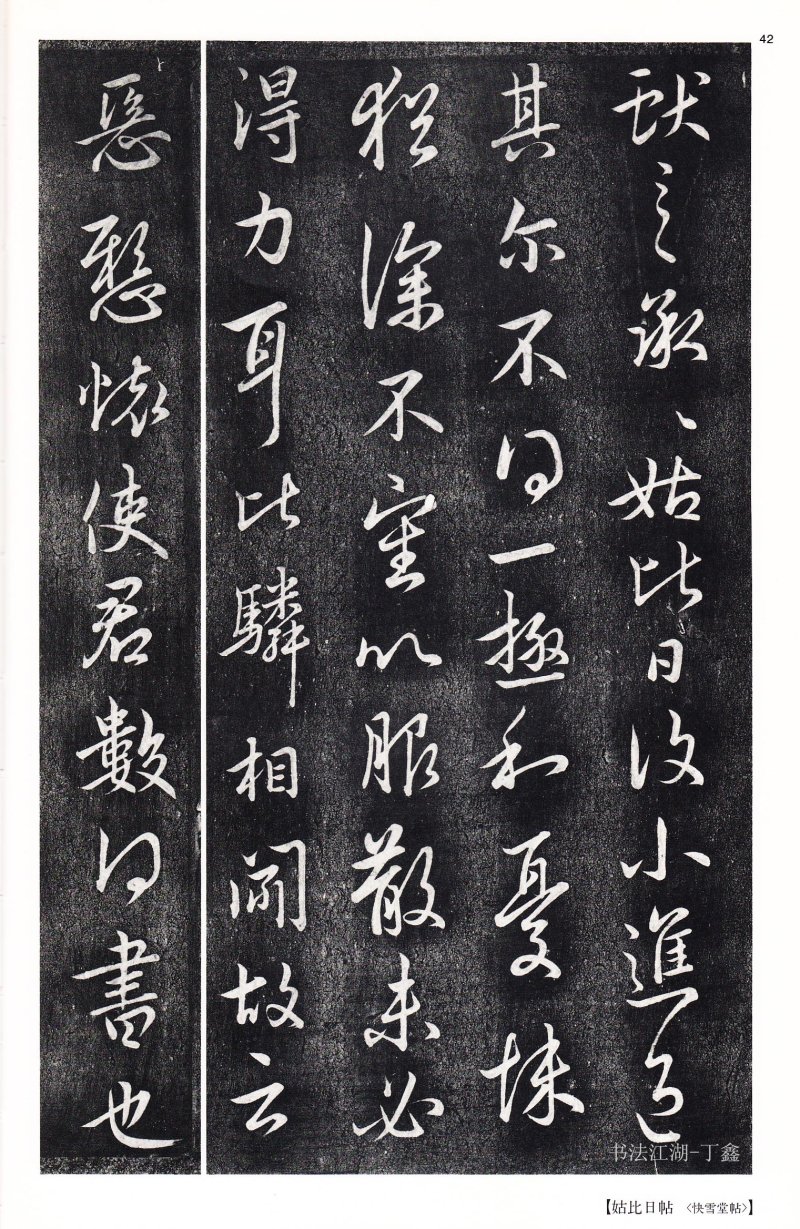 42
献之承〻姑比日復小進退
其尔不得一極和憂悚
猶深不審以服散未必
得力耳比驎相聞故云
惡懸懷使君數得書也
书法江湖-丁鑫
【姑比日帖 〈快雪堂帖〉】